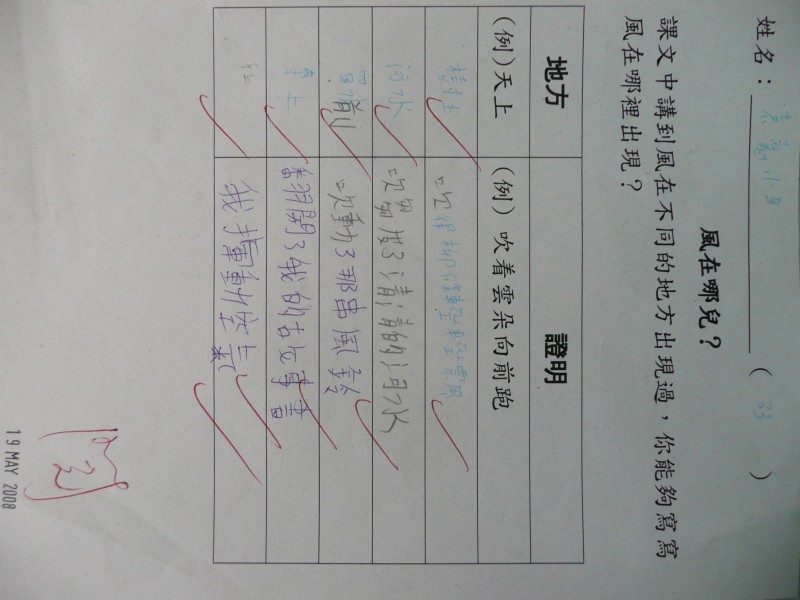 姓名：
( 33 )
風在哪兒？
課文中講到風在不同的地方出現過，你能夠寫寫
風在哪裡出現？
地方 證明
(例)天上 (例) 吹着雲朵向前跑
樹上 吹得柳條輕輕
河水 吹皺了清清的河水
窗前 吹動了那串風鈴
桌上 翻開了我的故事書
我 動空氣
閱
19 MAY 2008